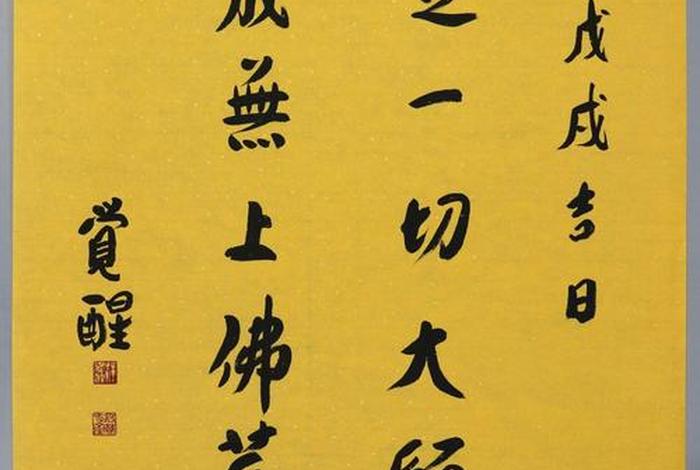 戊戌吉日
一切大願
成無上佛菩
覺醒